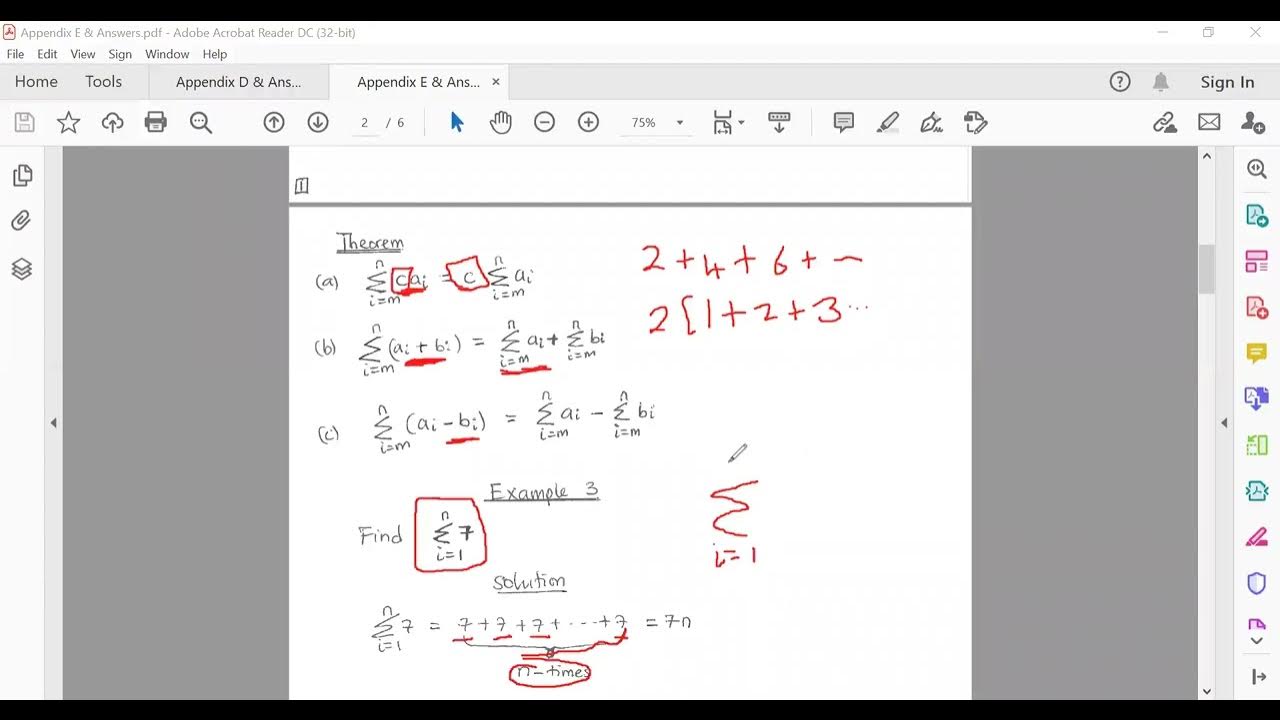 Appendix E & Answers.pdf - Adobe Acrobat Reader DC (32-bit)
File Edit View Sign Window Help
Home Tools Appendix D & Ans... Appendix E & Ans... × Sign In
2 / 6 75%
1
Theorem
(a) n∑i=m cai = c n∑i=m ai
2 + 4 + 6 + ~
2 [ 1 + 2 + 3 ...
(b) n∑i=m (ai + bi) = n∑i=m ai + n∑i=m bi
(c) n∑i=m (ai - bi) = n∑i=m ai - n∑i=m bi
Example 3
Find n∑i=1 7
∑i=1
Solution
n∑i=1 7 = 7 + 7 + 7 + ... + 7 = 7n
n-times